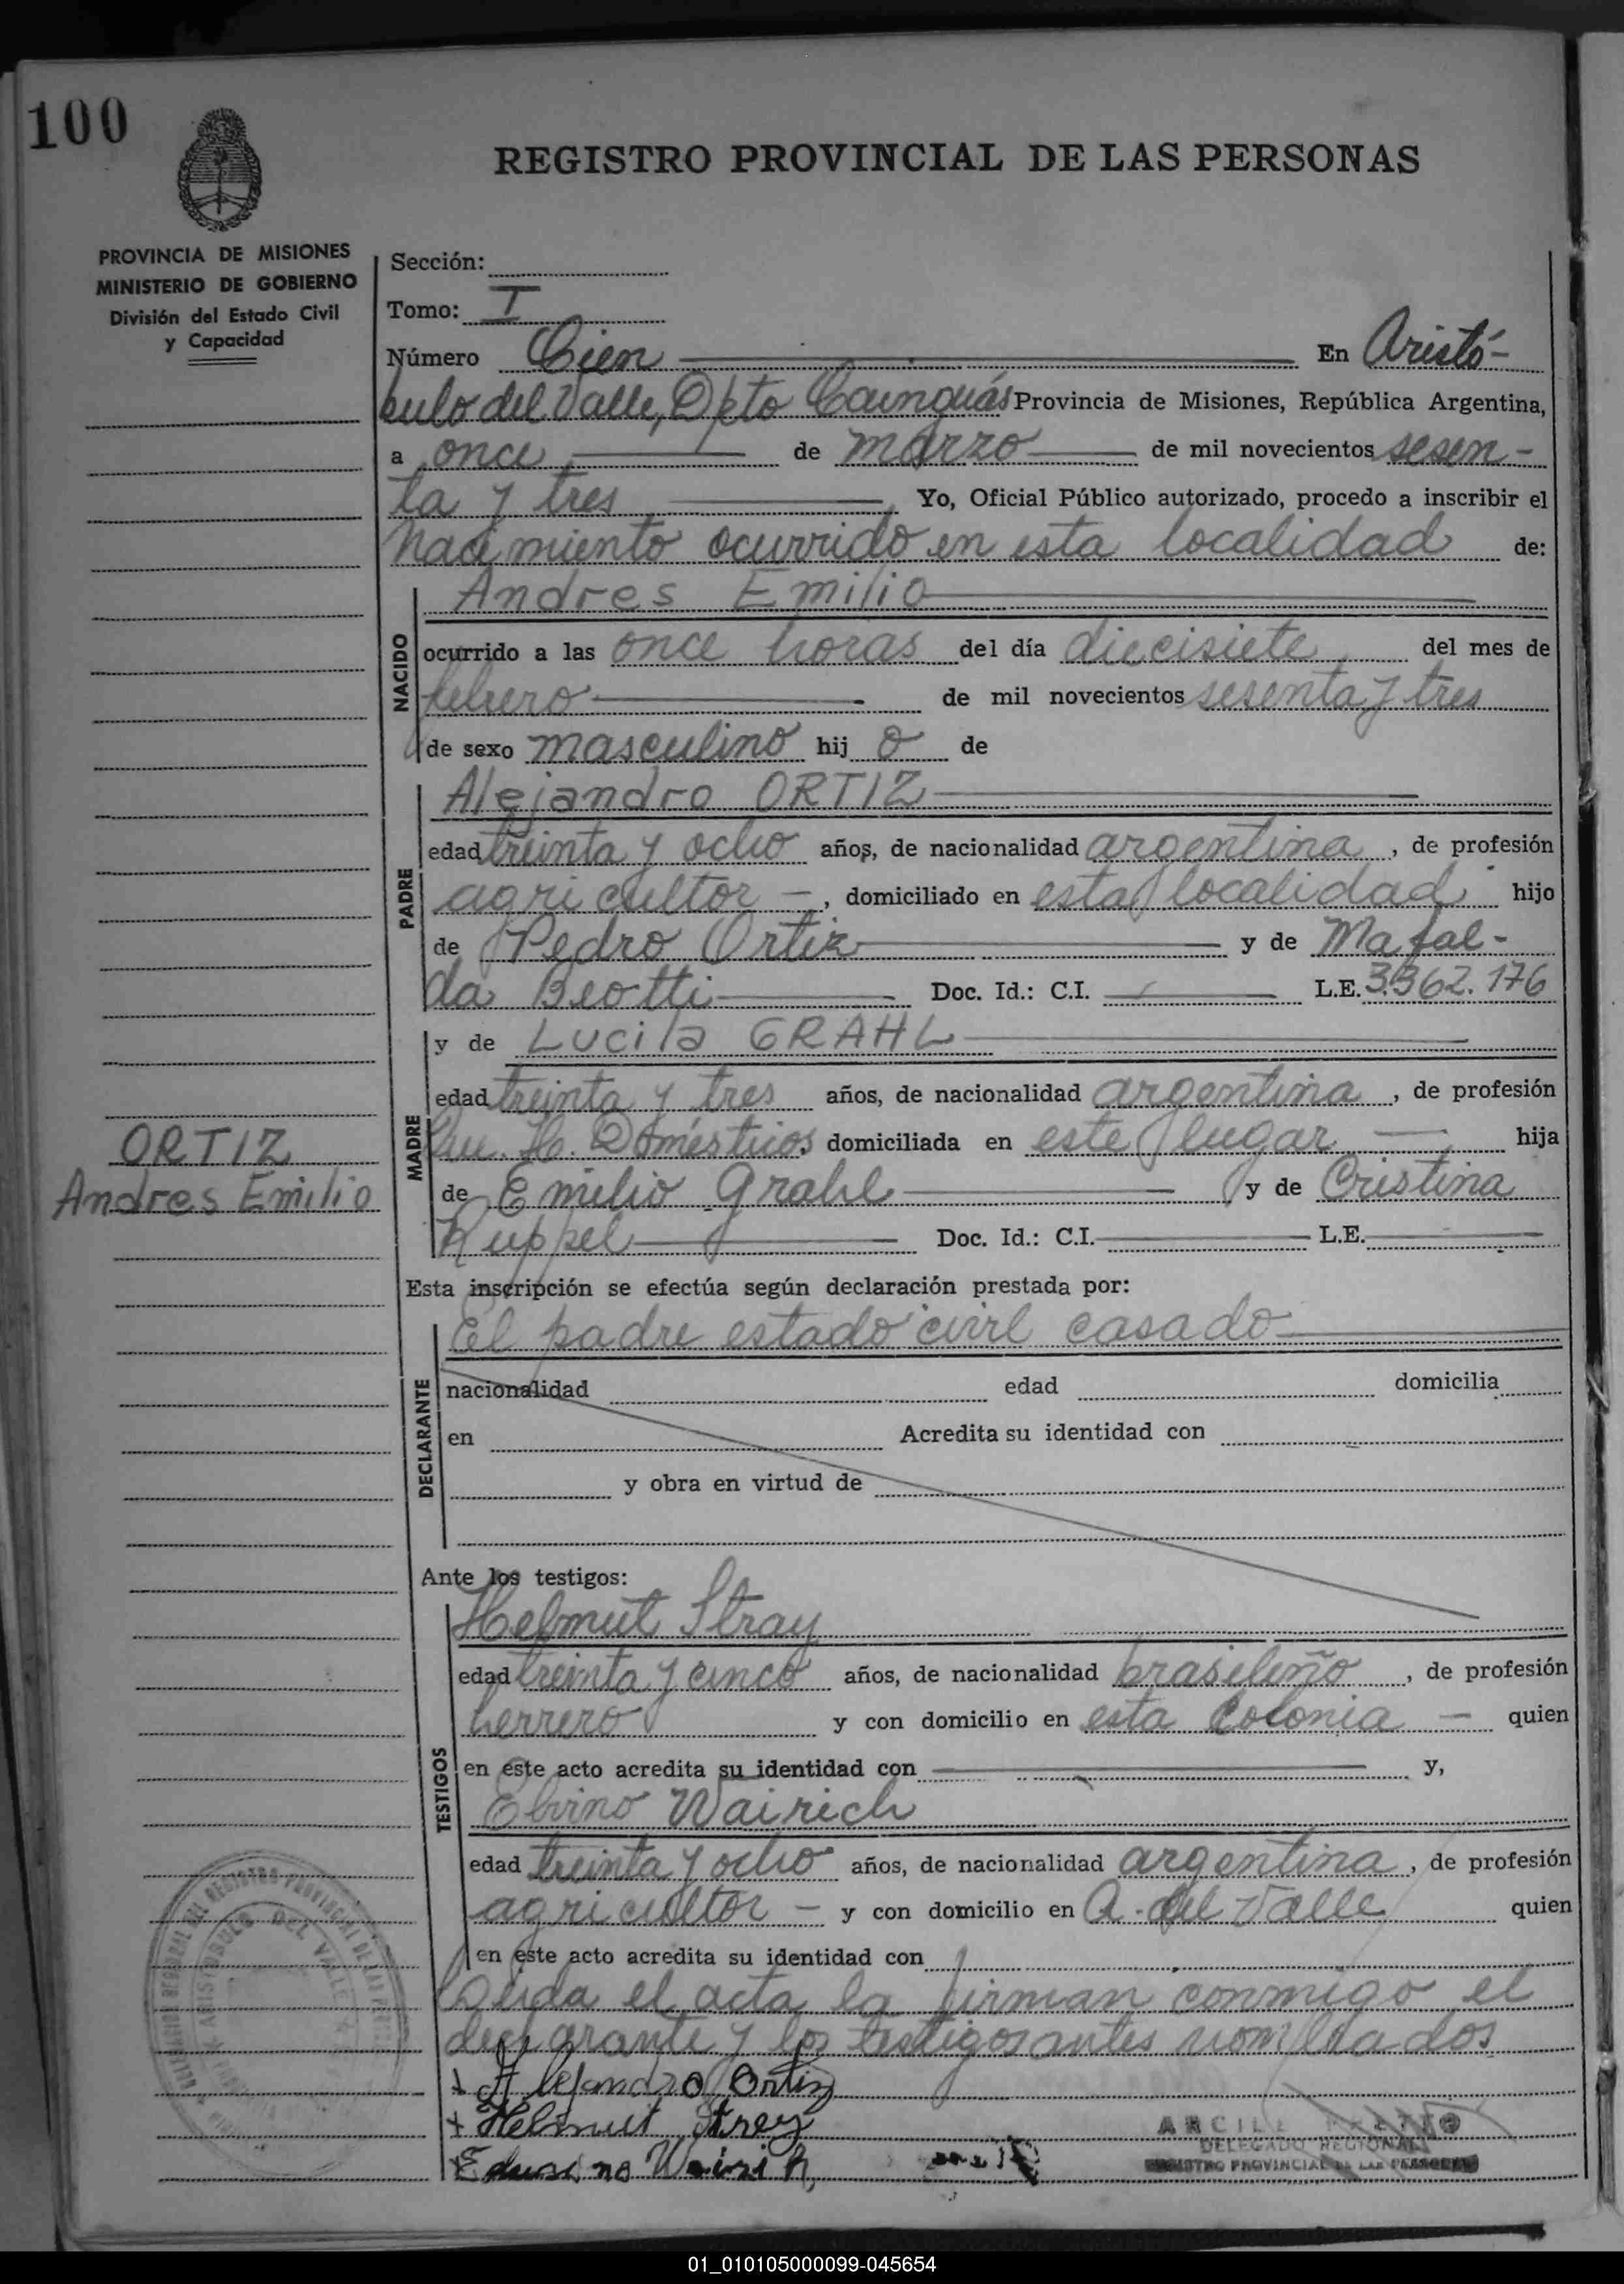 100
REGISTRO PROVINCIAL DE LAS PERSONAS
PROVINCIA DE MISIONES
MINISTERIO DE GOBIERNO
División del Estado Civil
y Capacidad
Sección:
Tomo: I
Número Cien En Aristó-
bulo del Valle, Dpto Cainguás Provincia de Misiones, República Argentina,
a once de marzo de mil novecientos sesen-
ta y tres Yo, Oficial Público autorizado, procedo a inscribir el
nacimiento ocurrido en esta localidad de:
NACIDO
Andres Emilio
ocurrido a las once horas del día diecisiete del mes de
febrero de mil novecientos sesenta y tres
de sexo masculino hij o de
PADRE
Alejandro ORTIZ
edad treinta y ocho años, de nacionalidad argentina, de profesión
agricultor -, domiciliado en esta localidad hijo
de Pedro Ortiz y de Mafal-
da Beotti Doc. Id.: C.I. L.E. 3.362.176
MADRE
y de Lucila GRAHL
edad treinta y tres años, de nacionalidad argentina, de profesión
Qu. H. Domésticos domiciliada en este lugar - hija
de Emilio Grahl y de Cristina
Ruppel Doc. Id.: C.I. L.E.
ORTIZ
Andres Emilio
Esta inscripción se efectúa según declaración prestada por:
DECLARANTE
El padre estado civil casado
nacionalidad edad domicilia
en Acredita su identidad con
y obra en virtud de
Ante los testigos:
TESTIGOS
Helmut Stray
edad treinta y cinco años, de nacionalidad brasileño, de profesión
herrero y con domicilio en esta Colonia - quien
en este acto acredita su identidad con y,
Elvino Wairich
edad treinta y ocho años, de nacionalidad argentina, de profesión
agricultor - y con domicilio en A. del Valle quien
en este acto acredita su identidad con
Leída el acta la firman conmigo el
declarante y los testigos antes nombrados
+ Alejandro Ortiz
+ Helmut Strey
+ Wairih
DELEGADO REGIONAL
REGISTRO PROVINCIAL DE LAS PERSONAS
ARISTOBULO DEL VALLE
01_010105000099-045654